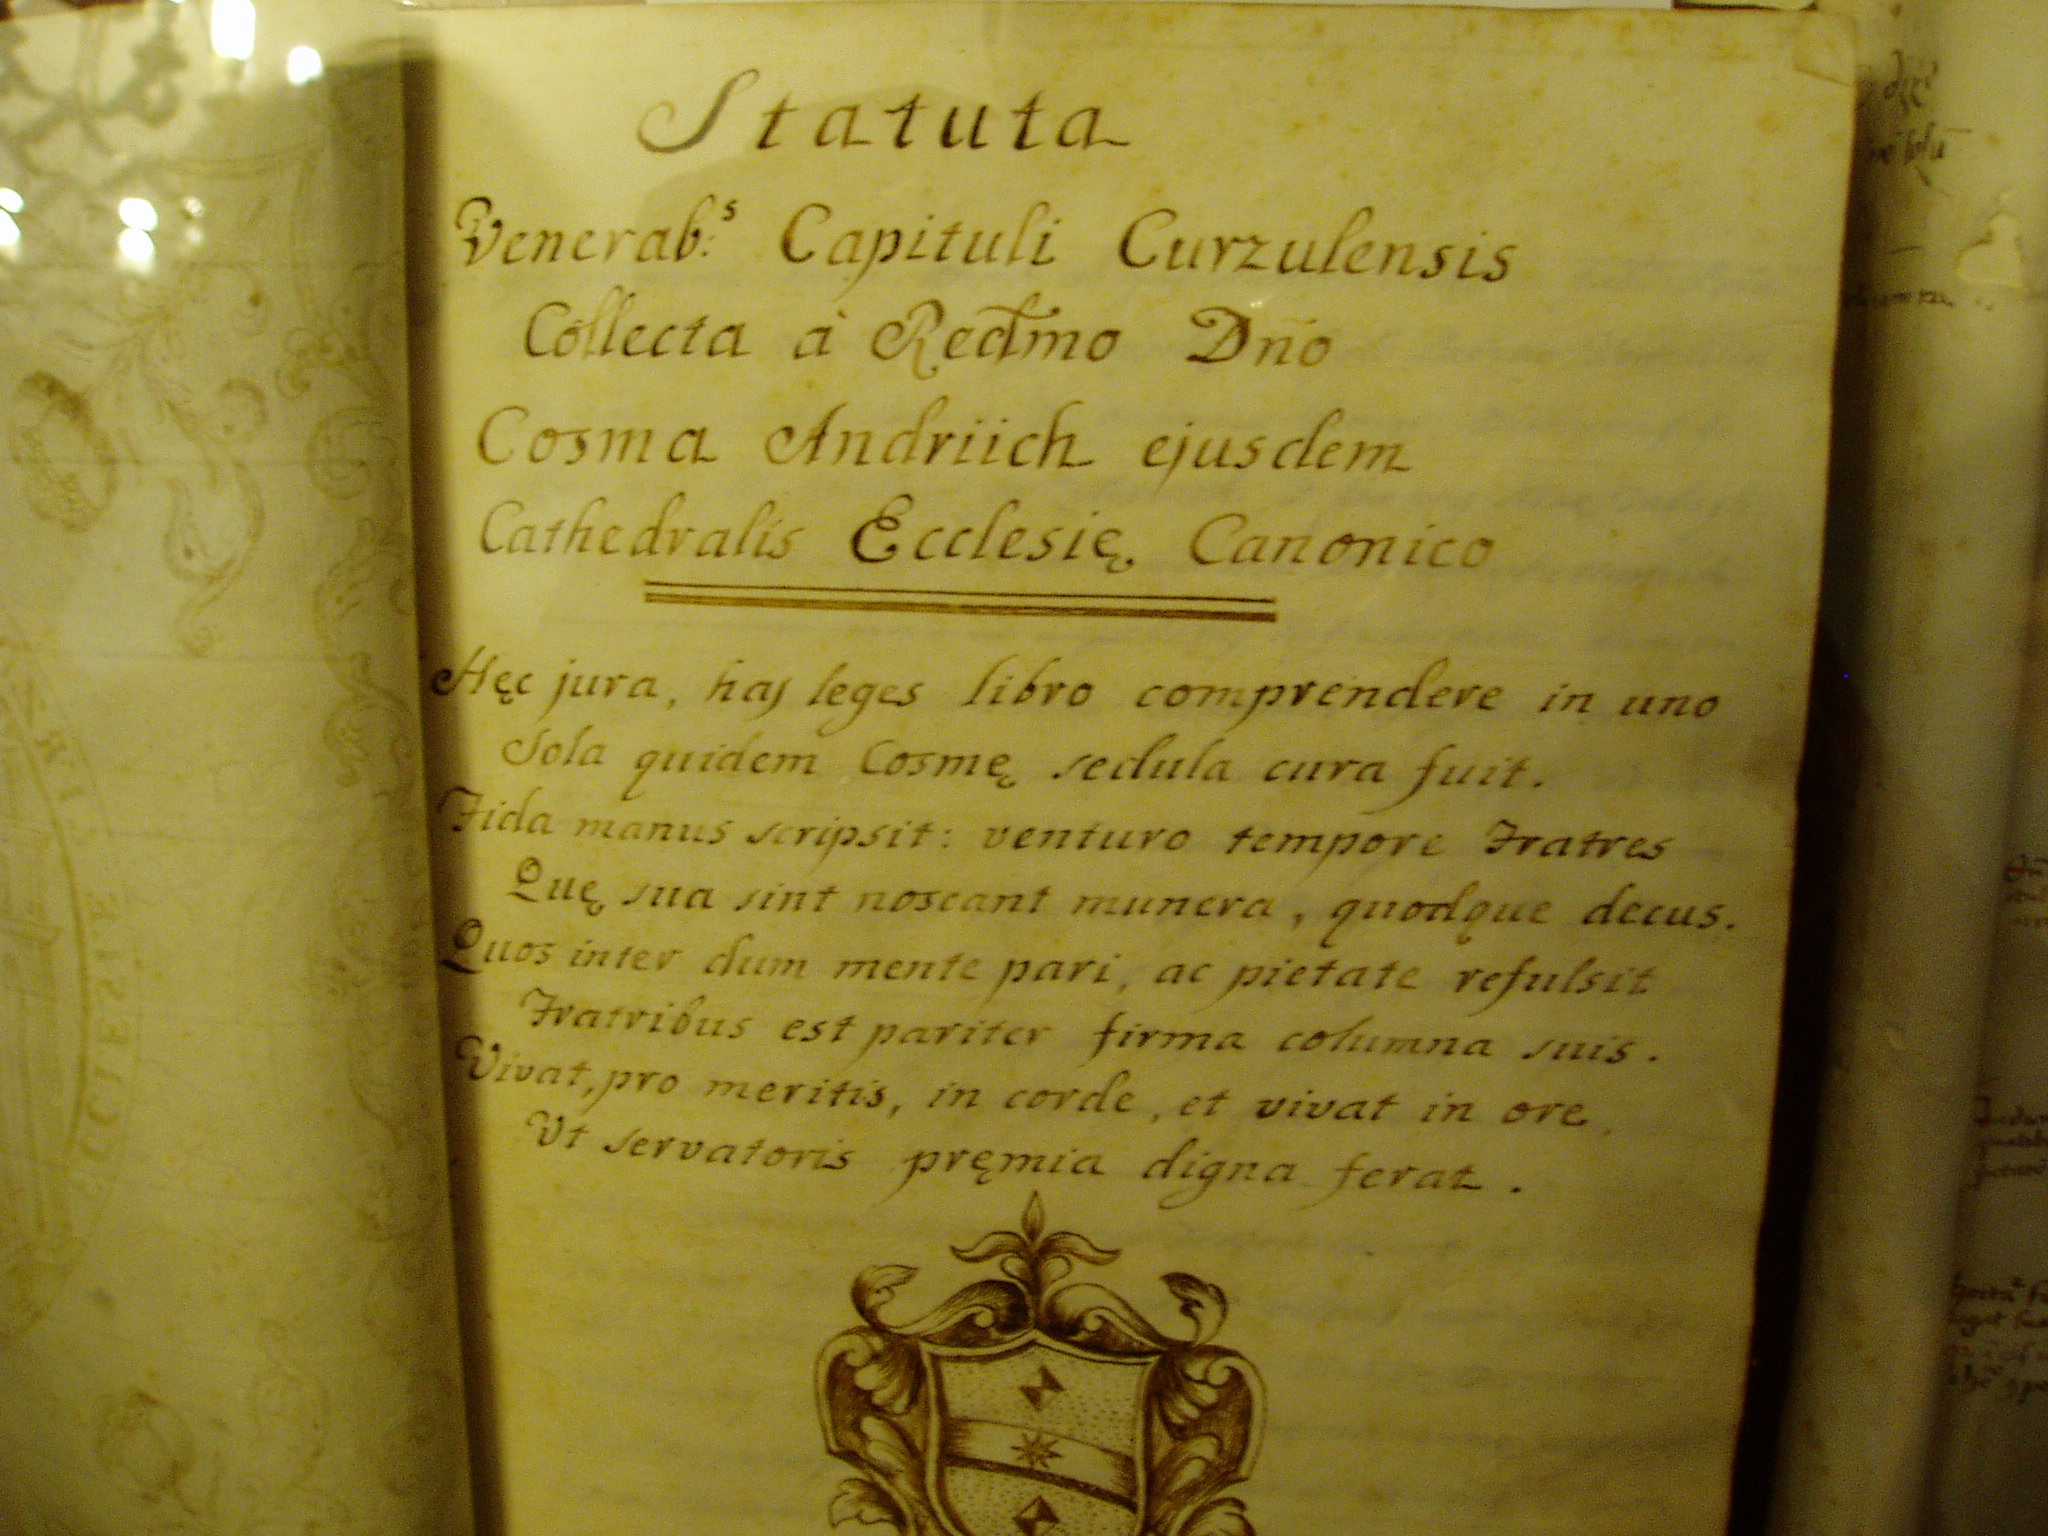 Statuta
Venerab:s Capituli Curzulensis
Collecta à Redmo Dño
Cosma Andriich ejusdem
Cathedralis Ecclesię Canonico
Hęc jura, has leges libro comprendere in uno
Sola quidem Cosmę sedula cura fuit.
Fida manus scripsit: venturo tempore Fratres
Quę sua sint noscant munera, quodque decus.
Quos inter dum mente pari, ac pietate refulsit
Fratribus est pariter firma columna suis.
Vivat, pro meritis, in corde, et vivat in ore,
Ut servatoris pręmia digna ferat.